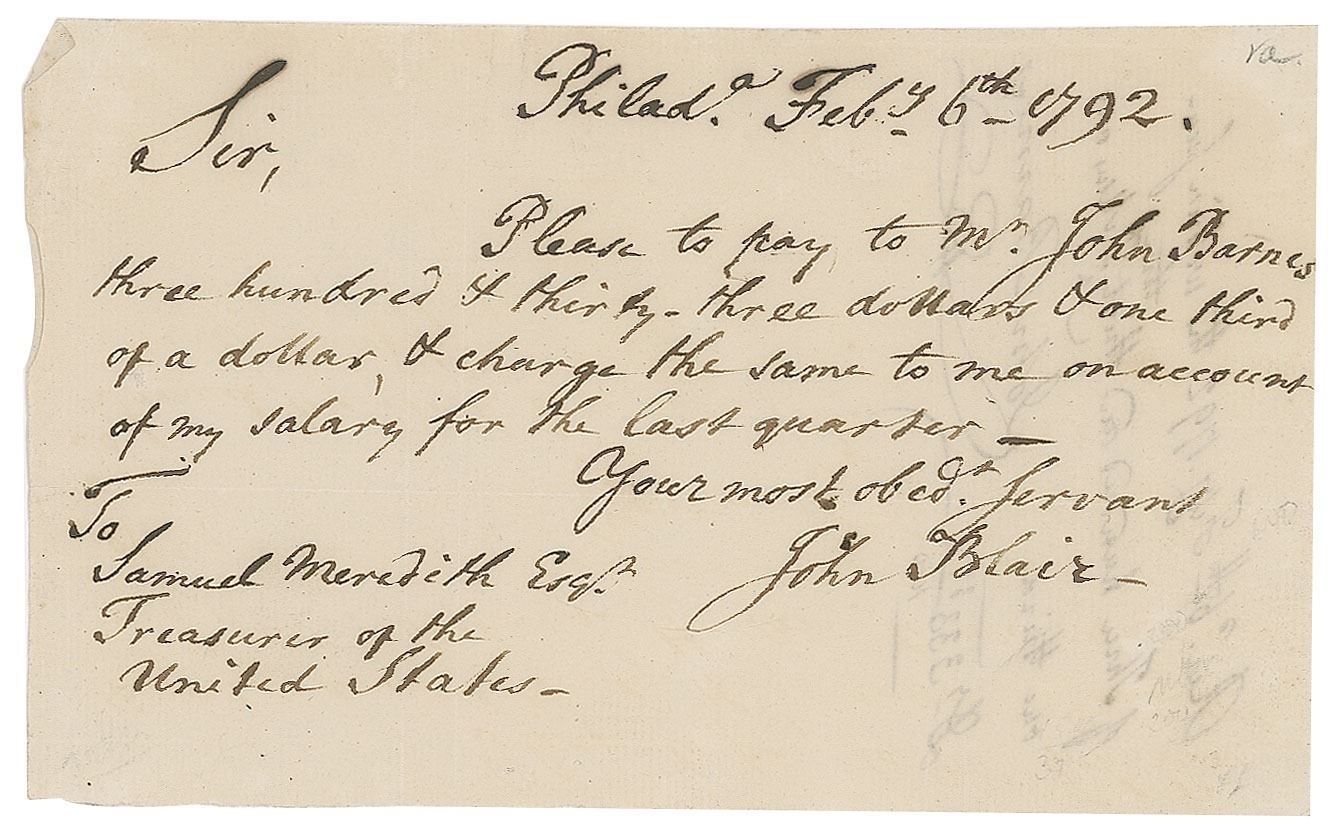 Philad.ᵃ Feb.ʸ 6ᵗʰ 1792.
Sir,
Please to pay to Mʳ. John Barnes
three hundred & thirty-three dollars & one third
of a dollar, & charge the same to me on account
of my salary for the last quarter —
Your most obedᵗ. servant
John Blair —
To
Samuel Meredith Esqʳ.
Treasurer of the
United States —
va.